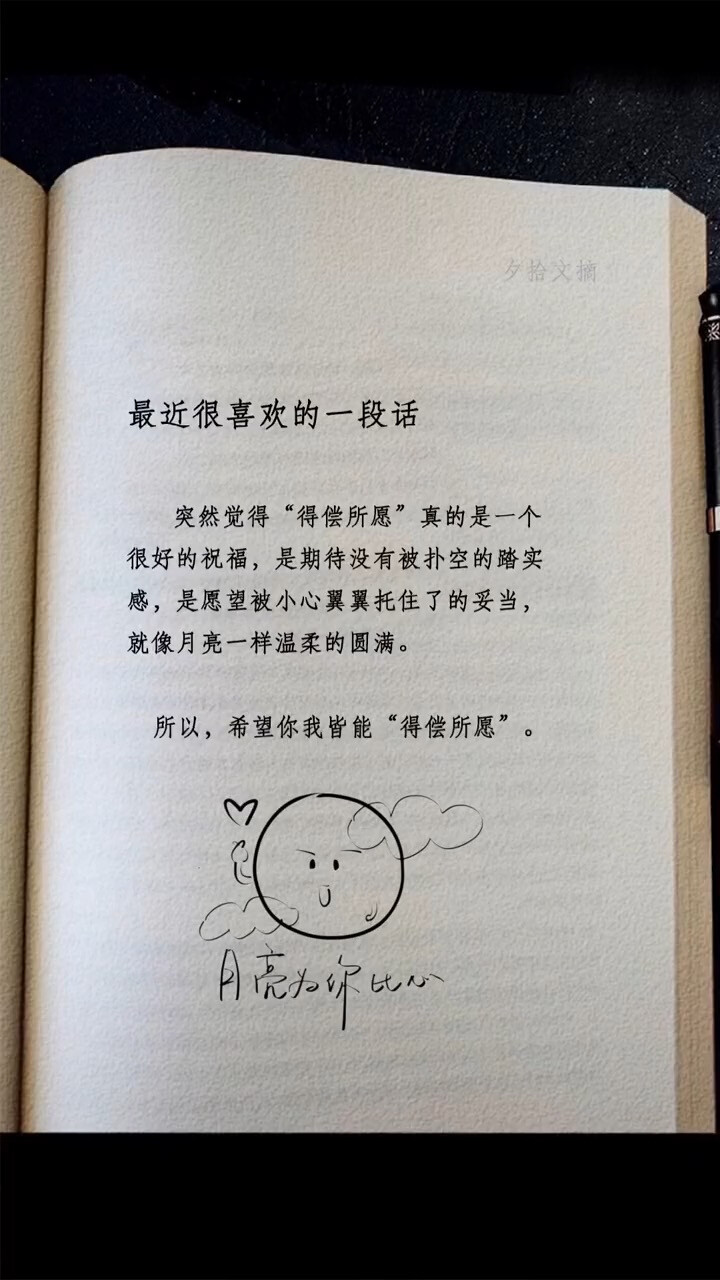 夕拾文摘
最近很喜欢的一段话
突然觉得“得偿所愿”真的是一个
很好的祝福，是期待没有被扑空的踏实
感，是愿望被小心翼翼托住了的妥当，
就像月亮一样温柔的圆满。
所以，希望你我皆能“得偿所愿”。
月亮为你比心